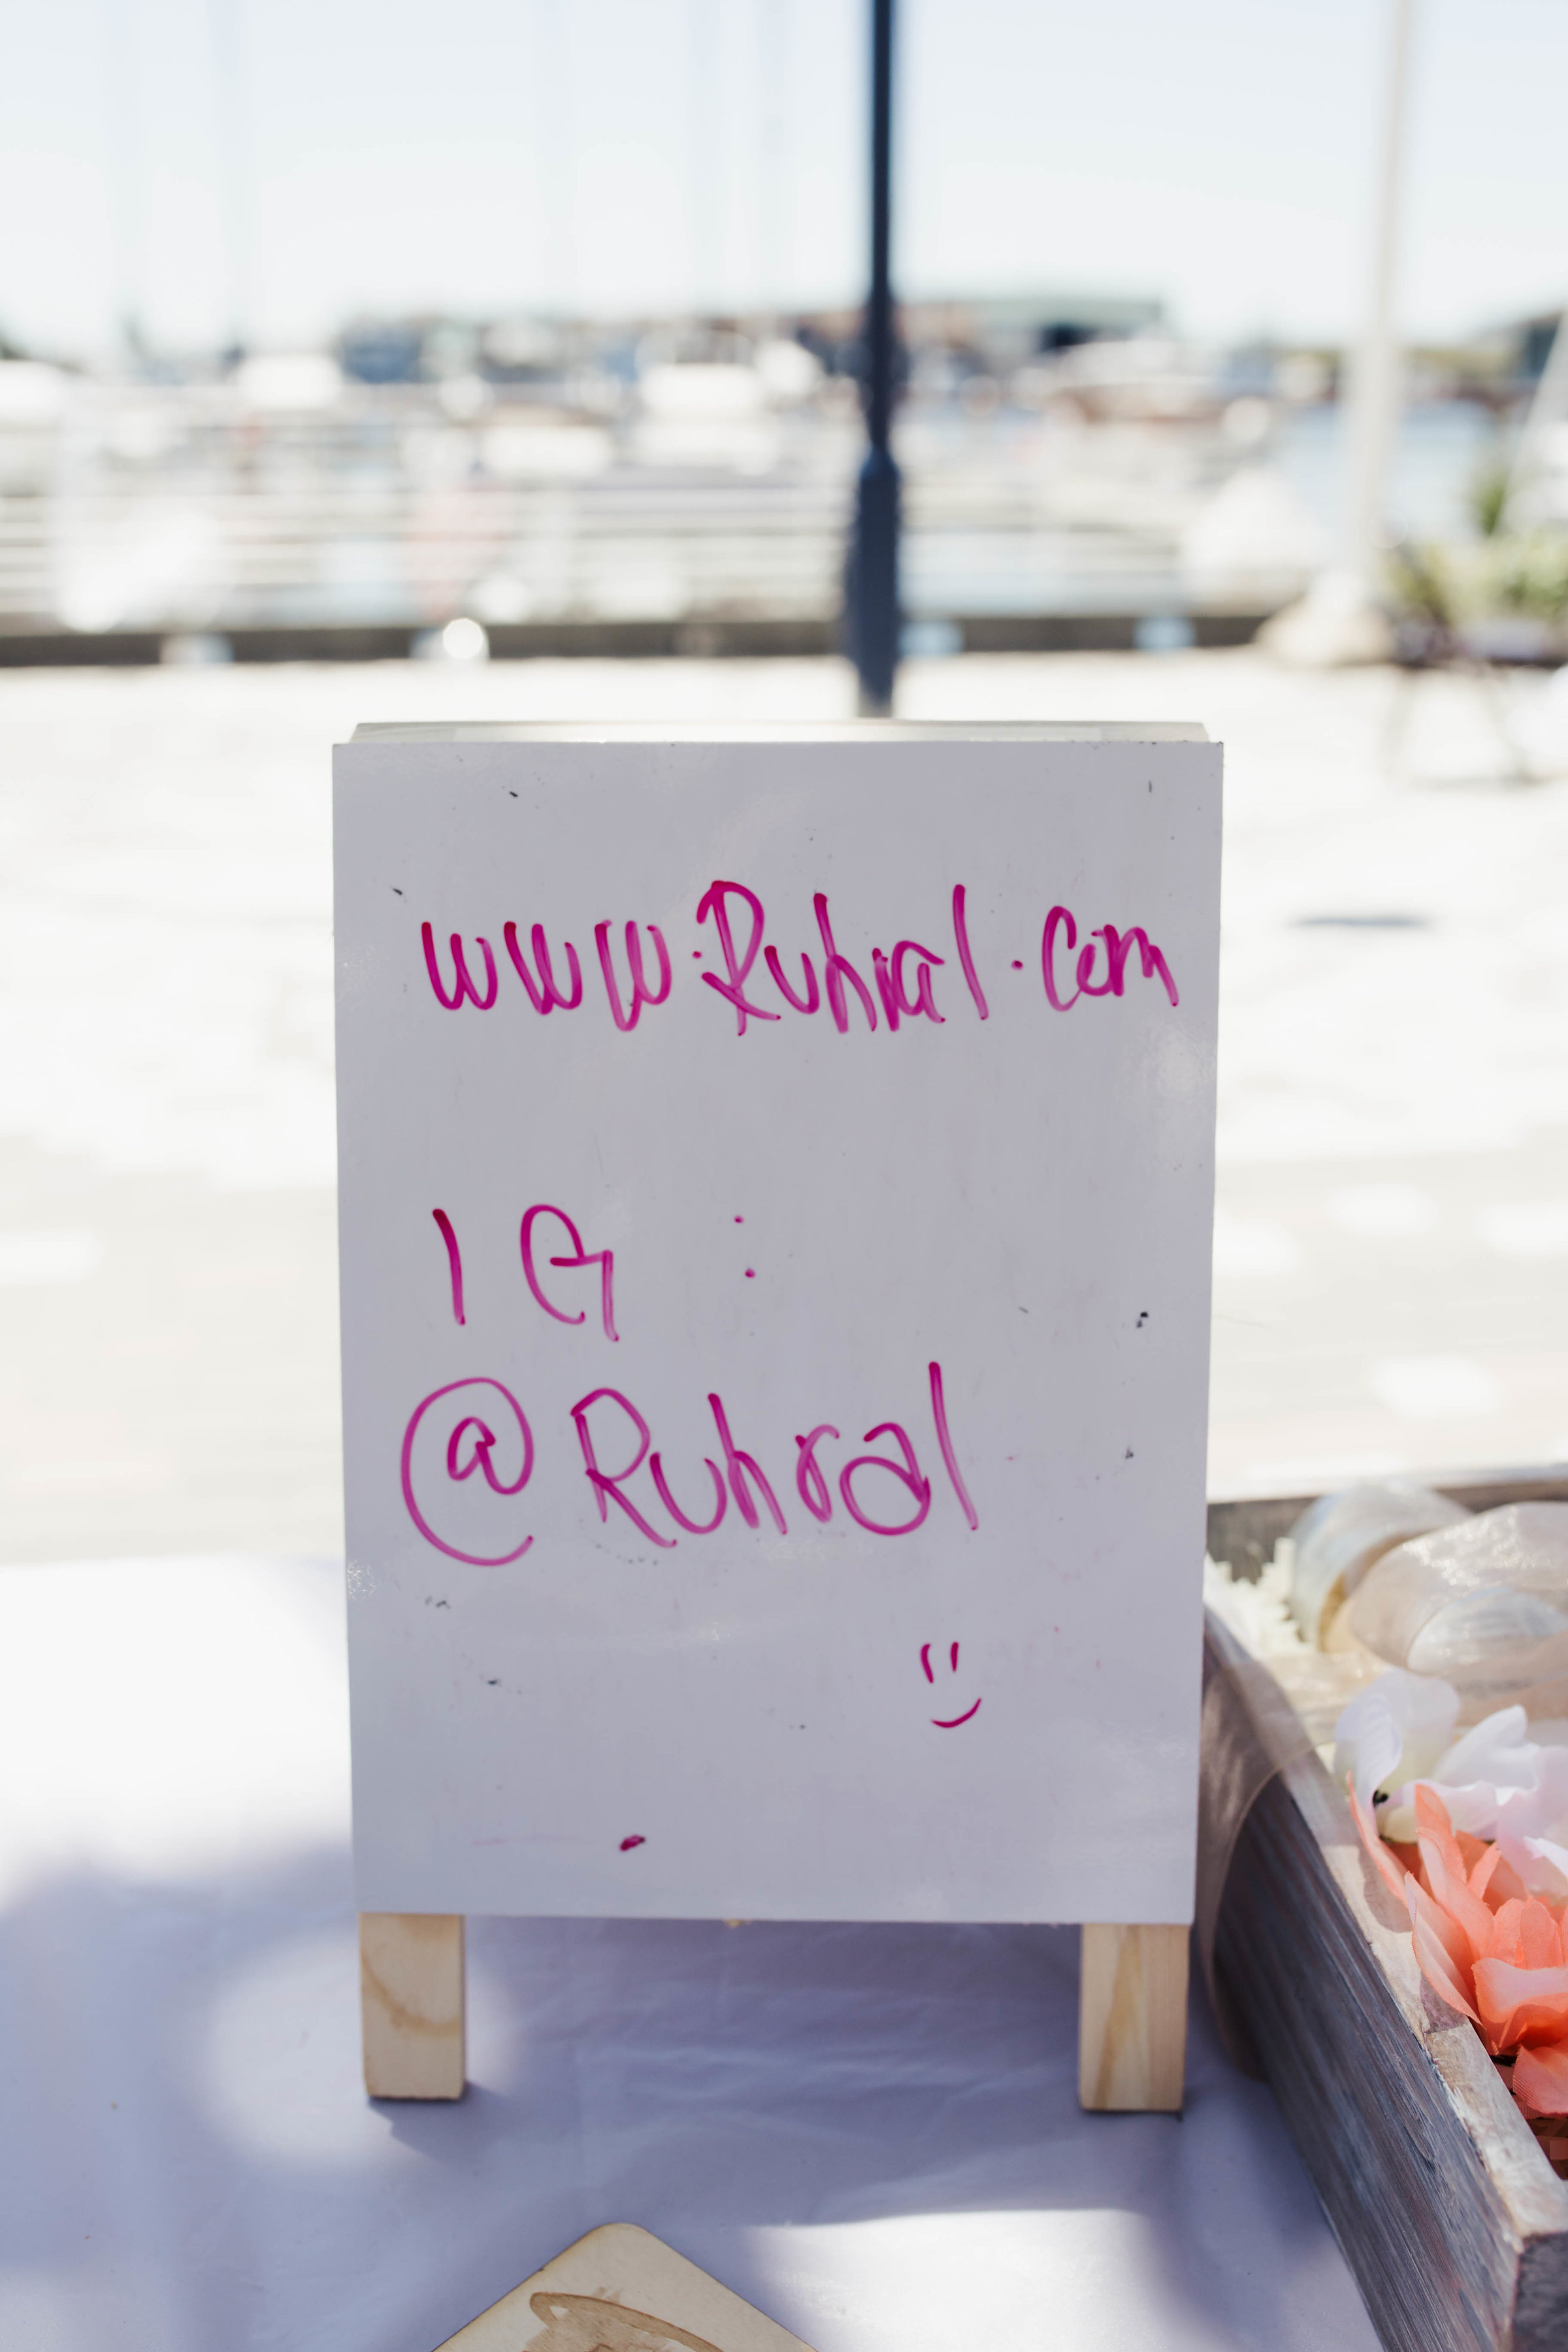 www.Ruhral.com
IG :
@Ruhral